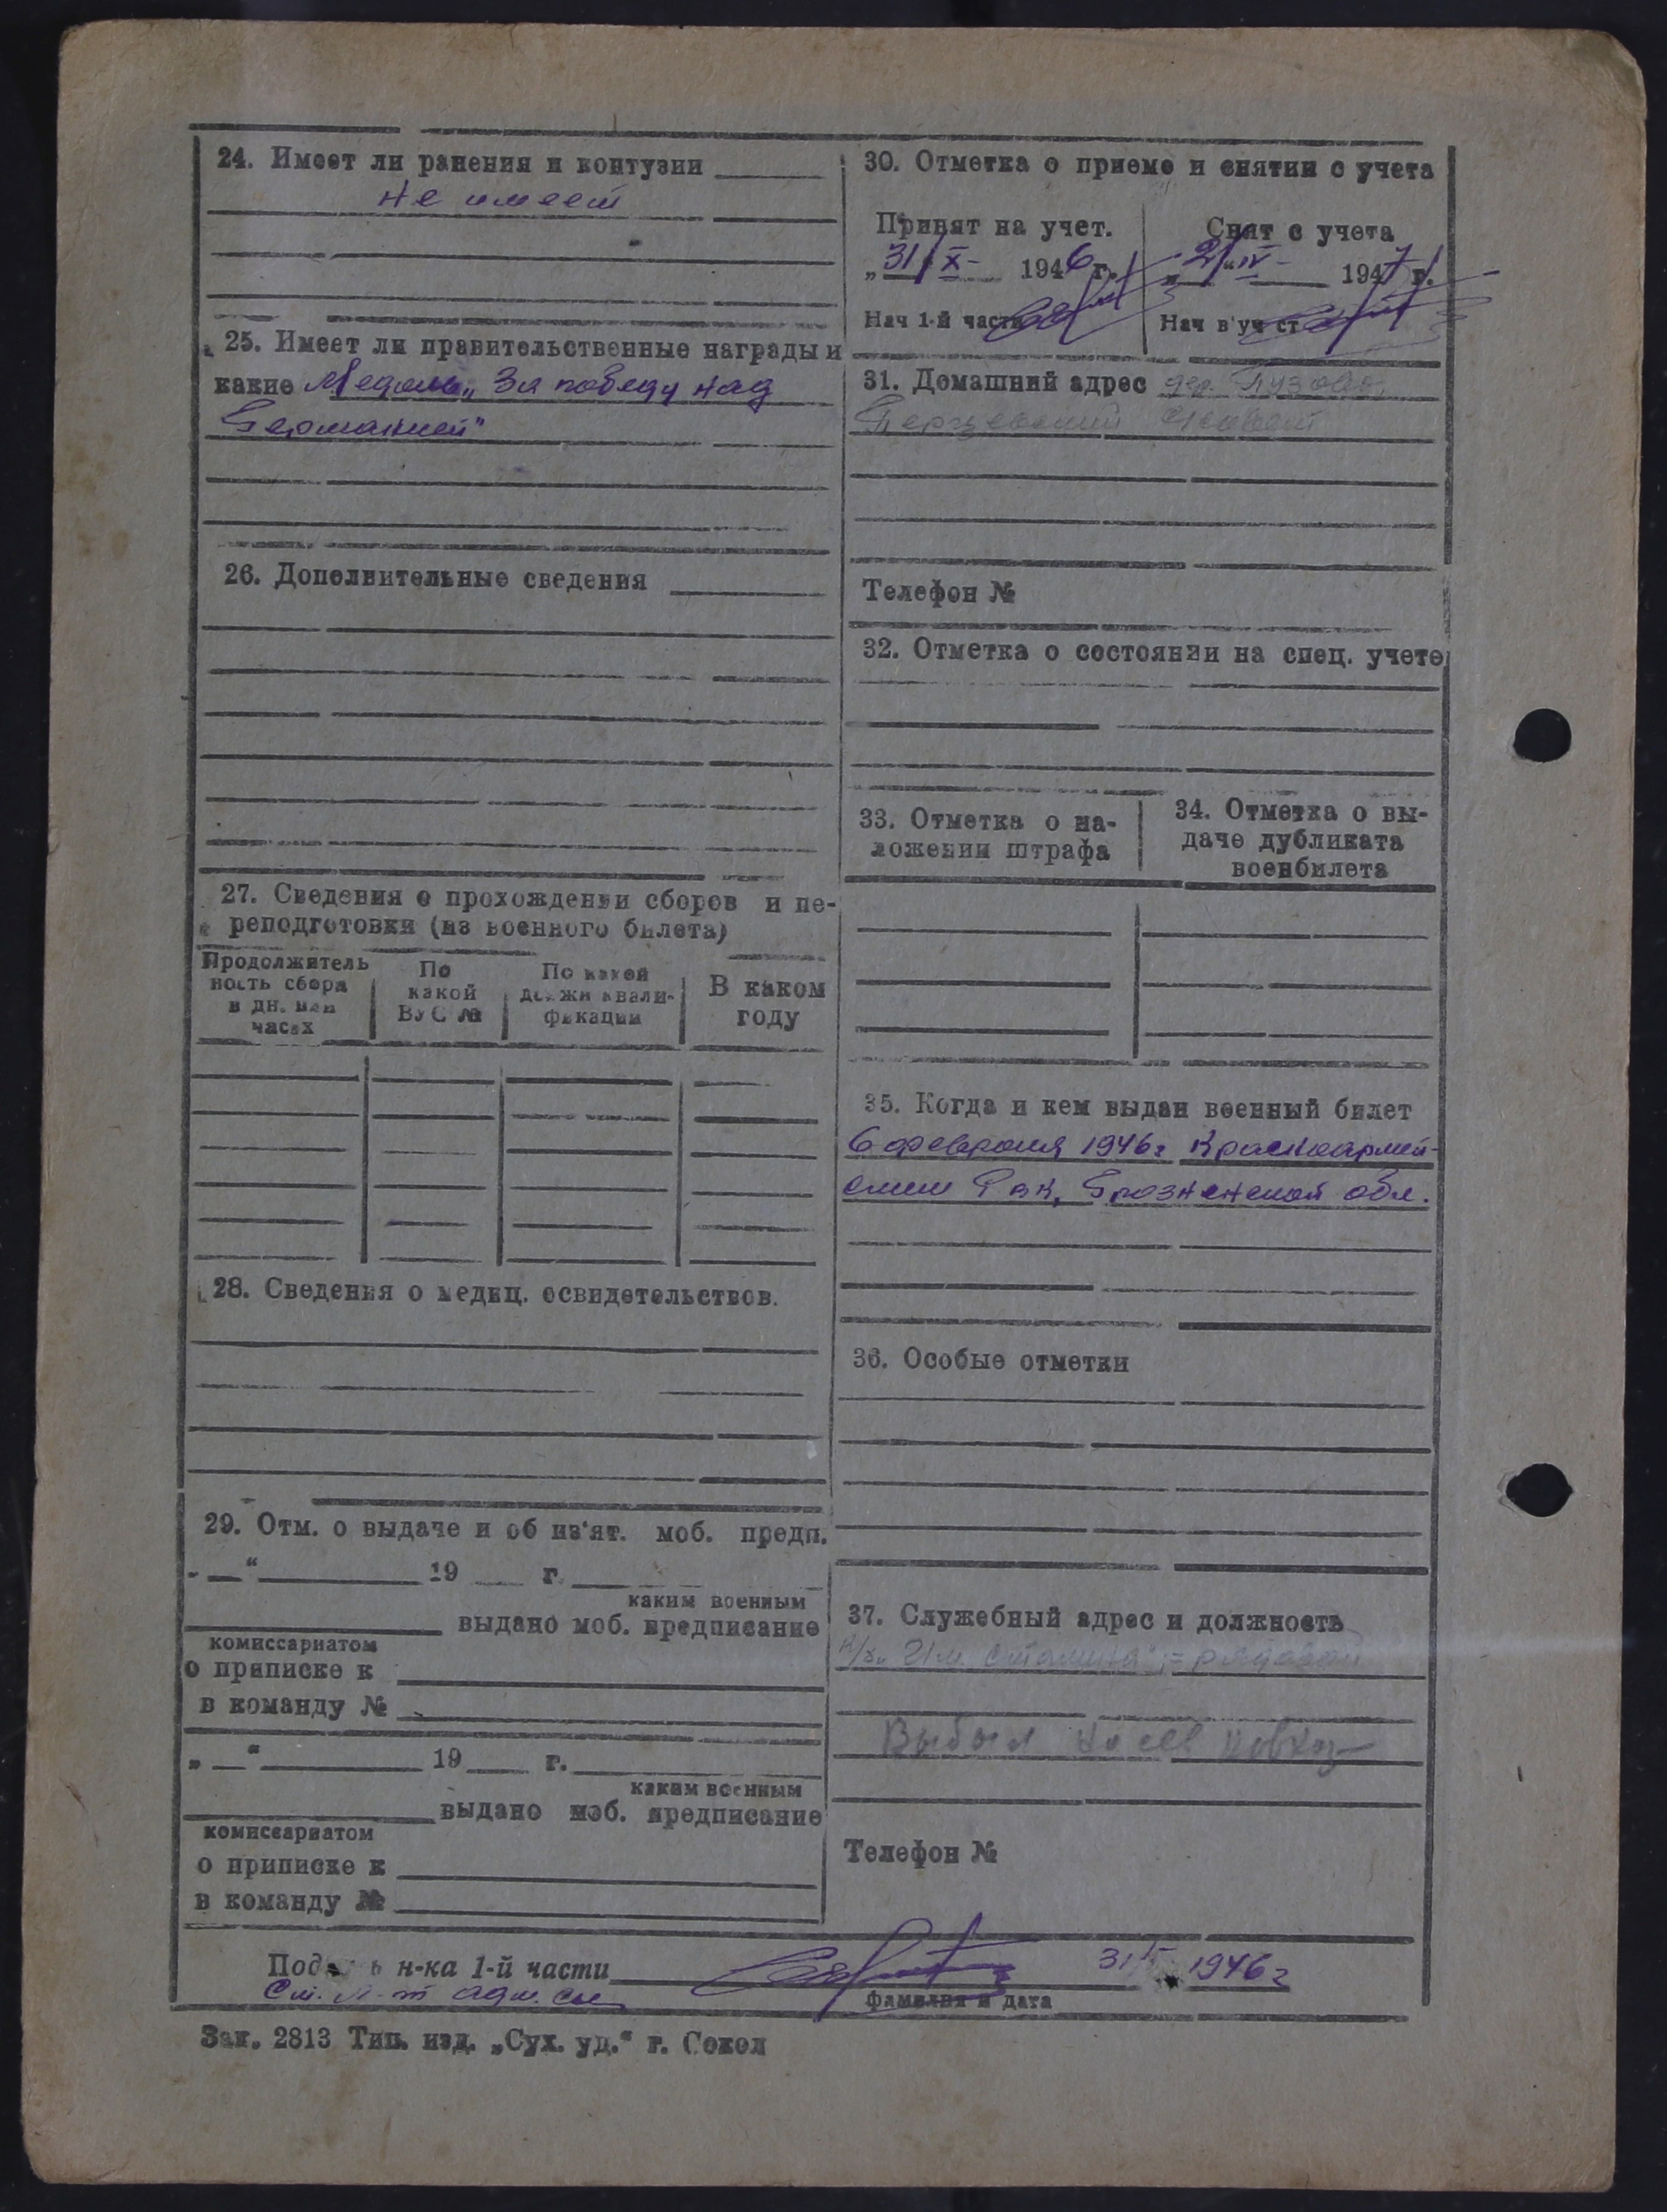 24. Имеет ли ранения и контузии
не имеет
25. Имеет ли правительственные награды и
какие Медаль „За победу над
Германией"
26. Дополнительные сведения
27. Сведения о прохождении сборов и пе-
реподготовки (из военного билета)
Продолжитель
ность сбора
в дн. или
часах
По
какой
ВУС №
По какой
должн квали-
фикации
В каком
году
28. Сведения о медиц. освидетельствов.
29. Отм. о выдаче и об из'ят. моб. предп.
„ — “ 19 г.
каким военным
выдано моб. предписание
комиссариатом
о приписке к
в команду №
„ — “ 19 г.
каким военным
выдано моб. предписание
комиссариатом
о приписке к
в команду №
30. Отметка о приеме и снятии с учета
Принят на учет.
„31" X - 1946 г.
Нач 1-й части
Снят с учета
„2" IV - 1947 г.
Нач в'уч ст
31. Домашний адрес дер.
Телефон №
32. Отметка о состоянии на спец. учете
33. Отметка о на-
ложении штрафа
34. Отметка о вы-
даче дубликата
военбилета
35. Когда и кем выдан военный билет
6 февраля 1946 г Красноармей-
ским Рвк, Грозненской обл.
36. Особые отметки
37. Служебный адрес и должность
к/з „Им. Сталина", - рядовой
Выбыл на сев кавказ
Телефон №
Подпись н-ка 1-й части
31/X 1946 г
Ст. л-т адм. сл.
фамилия и дата
Зак. 2813 Тип. изд. „Сух. уд.“ г. Сокол